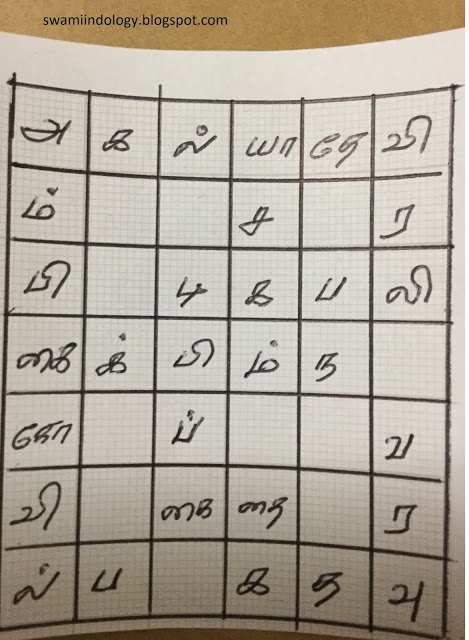 swamiindology.blogspot.com
அ க ல் யா தே வி
ம் ச ர
பி டி க ப லி
கை க் பி ம் ந
கோ ப் வ
வி கை தை ர
ல் ப க த வு